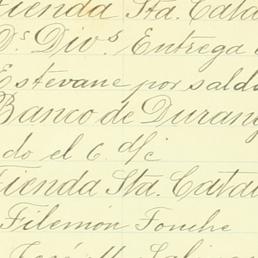 Tienda Sta. Cata
Ds. Divs. Entrega
Estevane por sald
Banco de Durang
do el 6. d/c
Tienda Sta. Catal
Filemón Fonche
José M. Salin